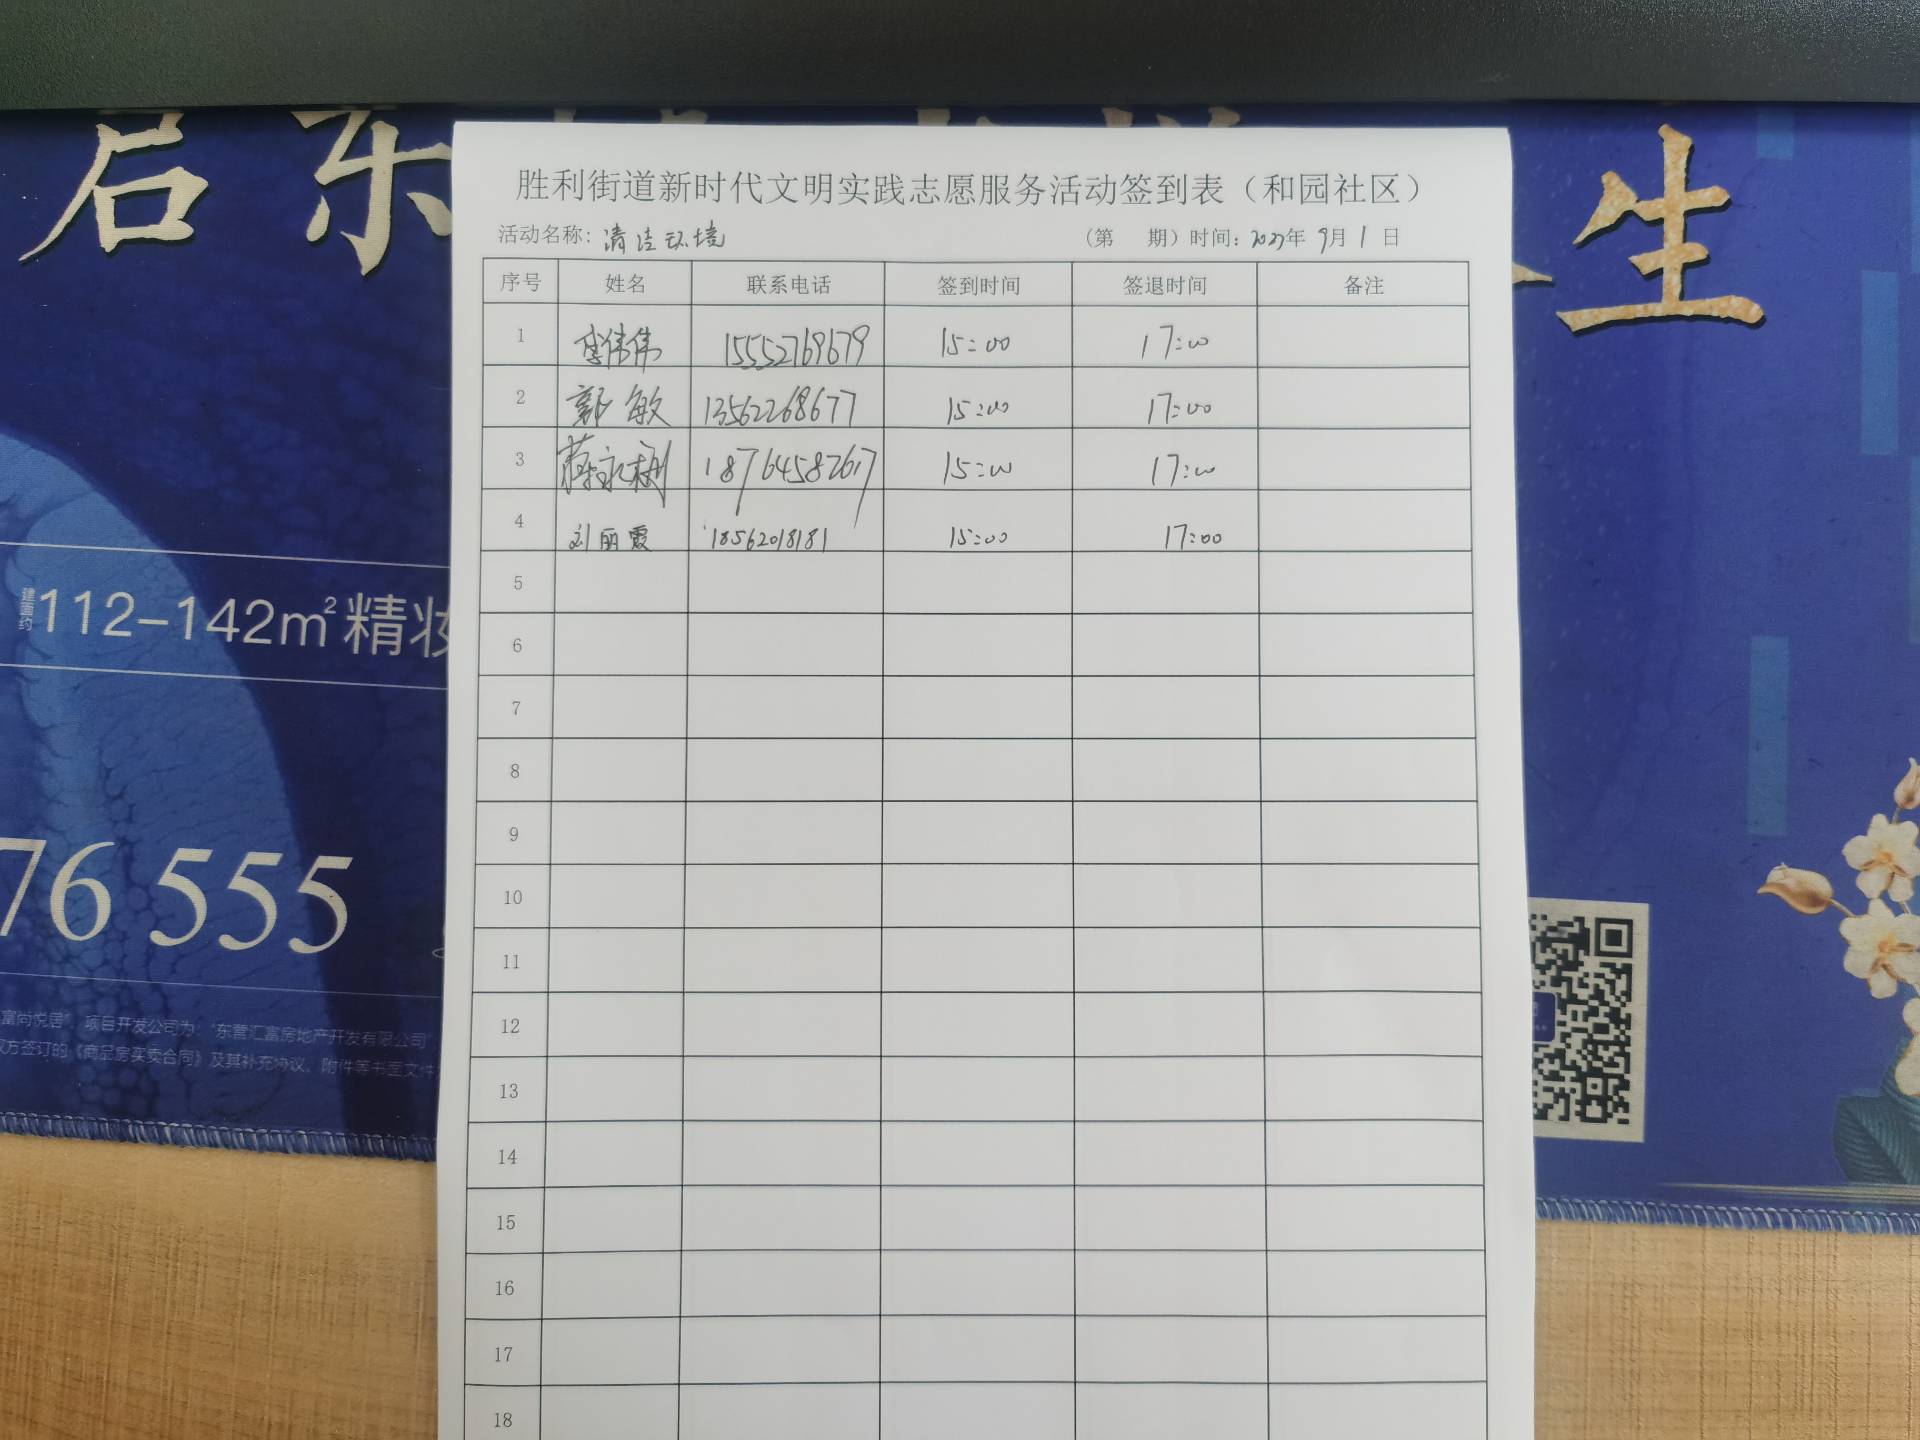 启东
生
胜利街道新时代文明实践志愿服务活动签到表（和园社区）
活动名称：清洁环境 （第 期）时间：2023年9月1日
序号 姓名 联系电话 签到时间 签退时间 备注
1 李伟伟 15552769679 15:00 17:00
2 郭敏 13562268677 15:00 17:00
3 18764582617 15:00 17:00
4 刘丽霞 18562018181 15:00 17:00
5
6
7
8
9
10
11
12
13
14
15
16
17
18
建面约112-142m²精妆
76 555
富尚悦居”，项目开发公司为：“东营汇富房地产开发有限公司”
双方签订的《商品房买卖合同》及其补充协议、附件等书面文件